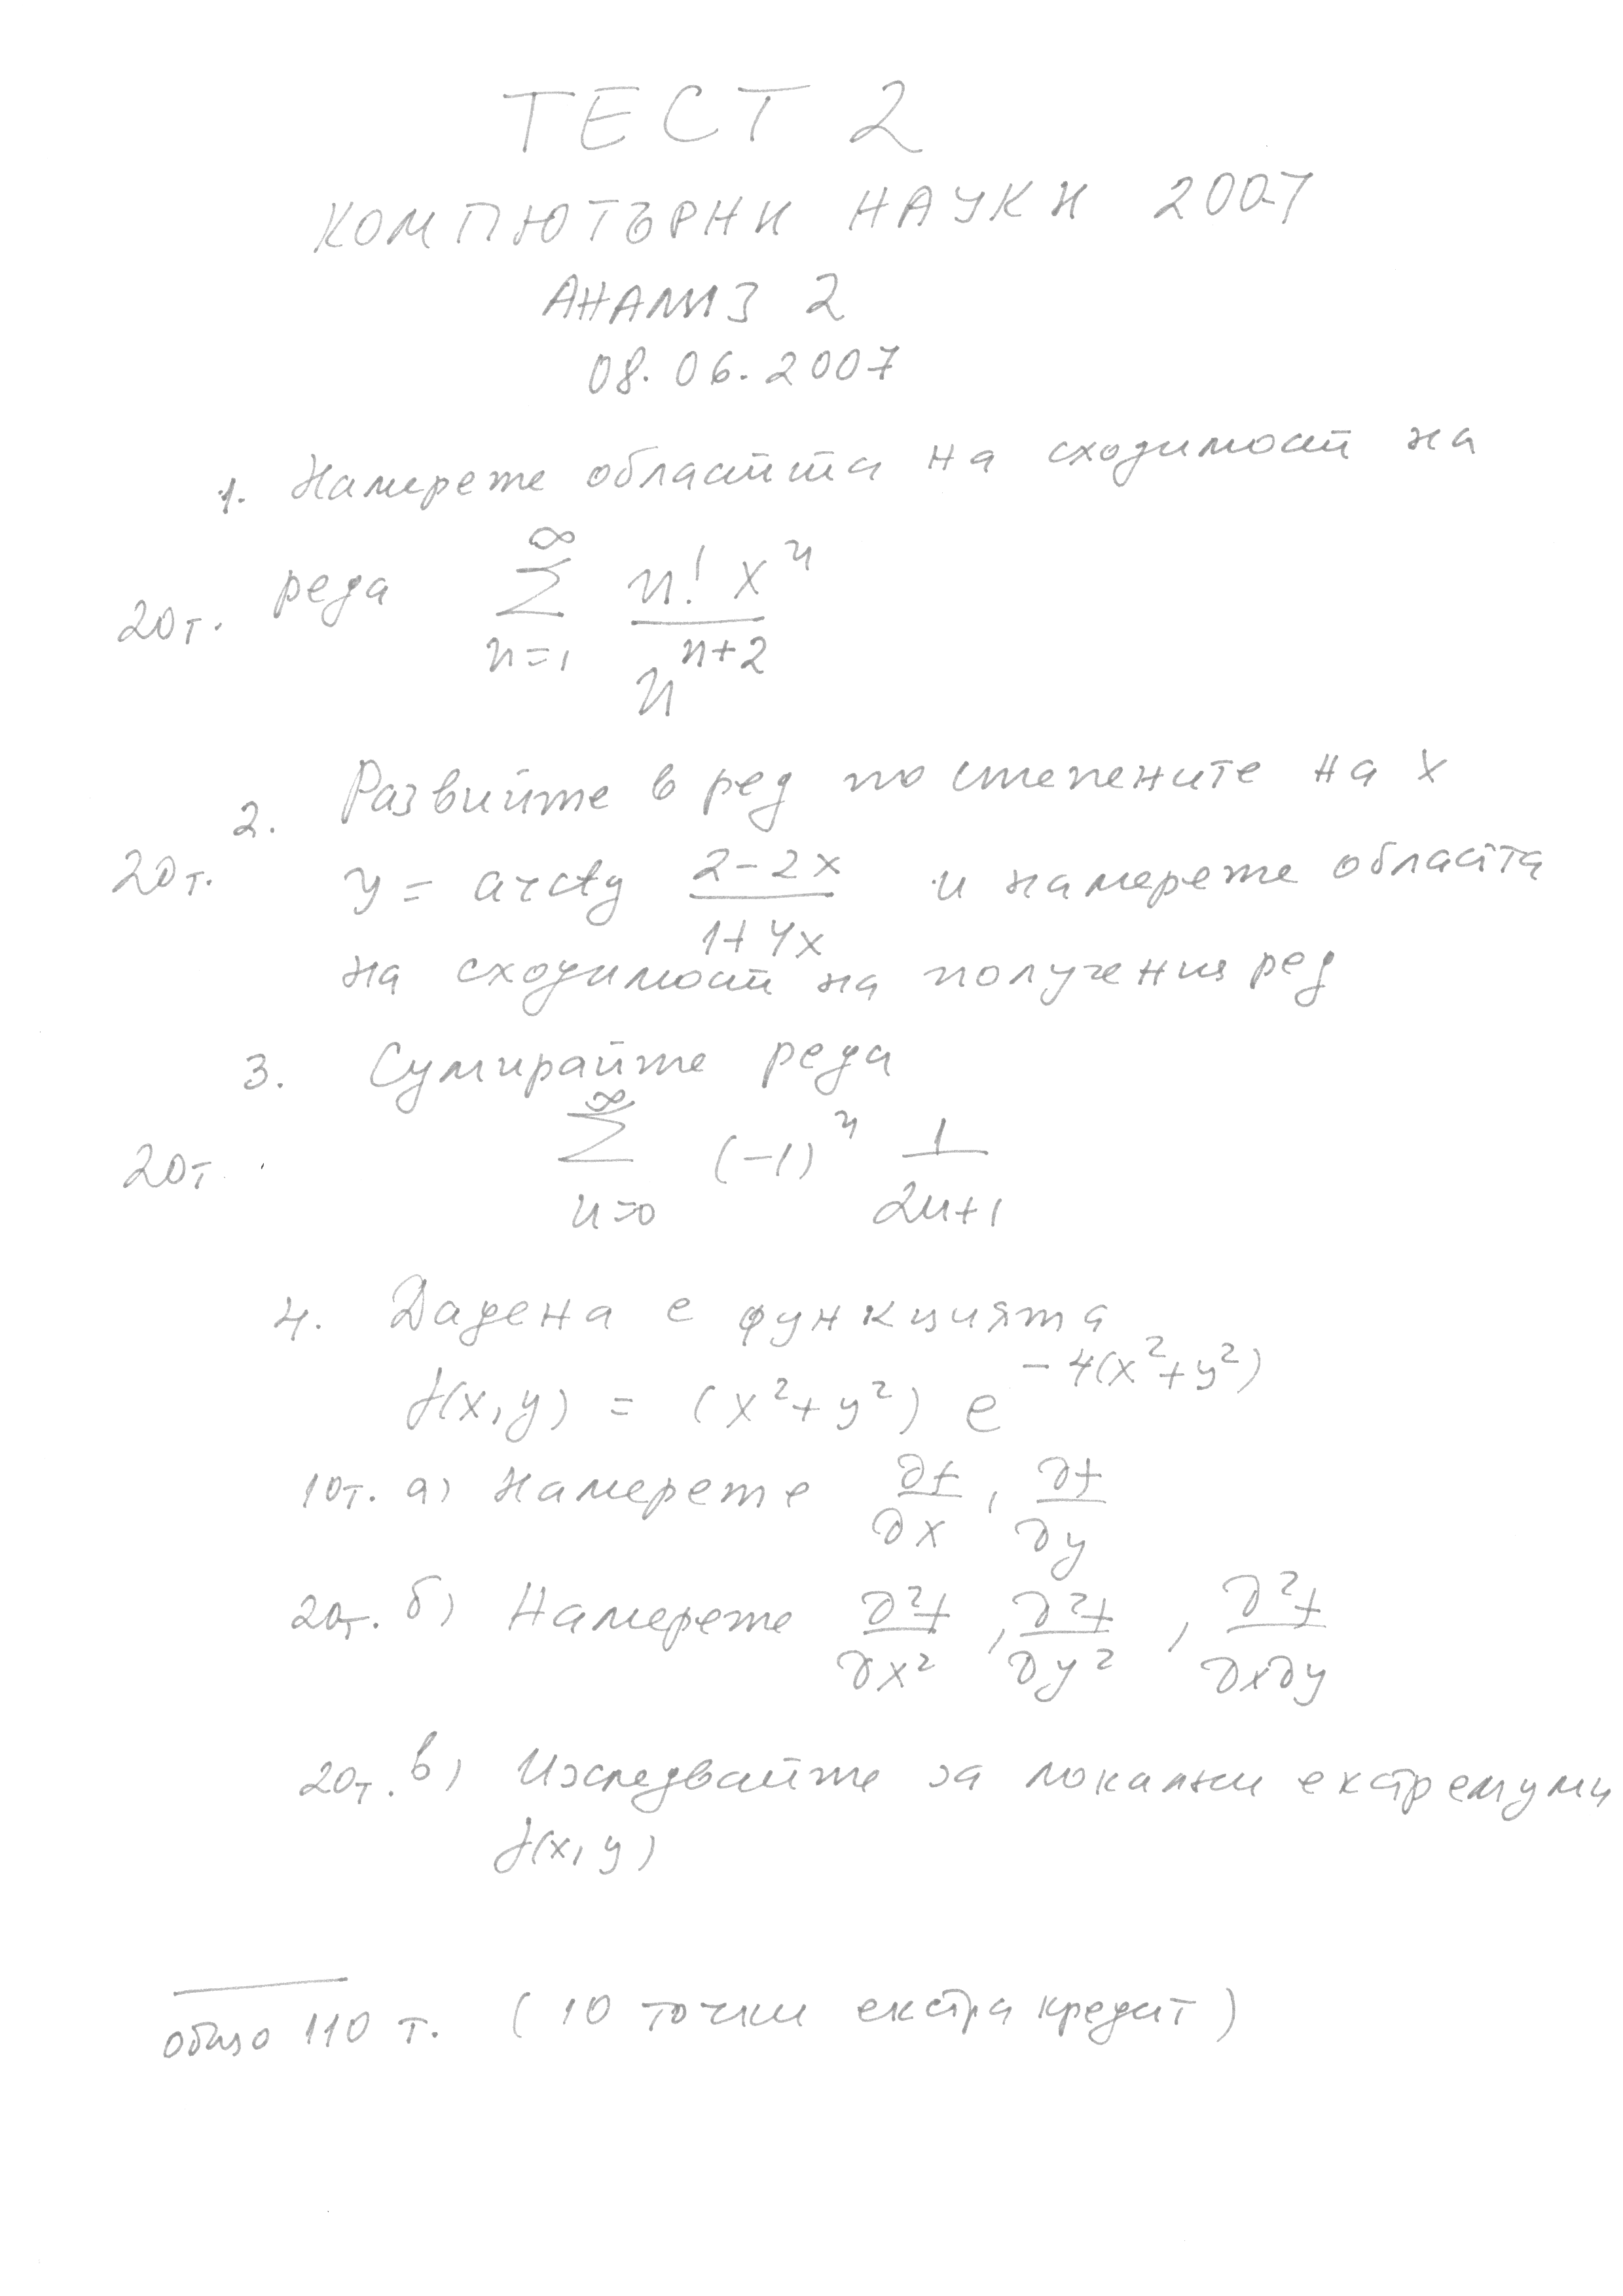 ТЕСТ 2
КОМПЮТЪРНИ НАУКИ 2007
АНАЛИЗ 2
08.06.2007
1. Намерете областта на сходимост на
20т. реда \sum_{n=1}^{\infty} \frac{n! x^n}{n^{n+2}}
2. Развийте в ред по степените на x
20т. y = arctg \frac{2-2x}{1+4x} и намерете областта
на сходимост на получения ред
3. Сумирайте реда
20т. \sum_{n=0}^{\infty} (-1)^n \frac{1}{2n+1}
4. Дадена е функцията
f(x,y) = (x^2+y^2) e^{-4(x^2+y^2)}
10т. а) Намерете \frac{∂f}{∂x}, \frac{∂f}{∂y}
20т. б) Намерете \frac{∂^2f}{∂x^2}, \frac{∂^2f}{∂y^2}, \frac{∂^2f}{∂x∂y}
20т. в) Изследвайте за локални екстремуми
f(x,y)
общо 110 т. (10 точки екстра кредит)